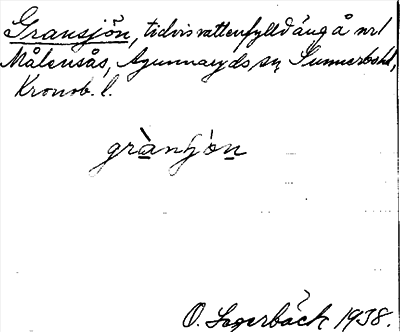 Gransjön, tidvis vattenfylld äng å nr 1
Målensås, Agunnaryds sn, Sunnerbohd,
Kronob. l.
grànʃòn
O. Segerbäck 1938.